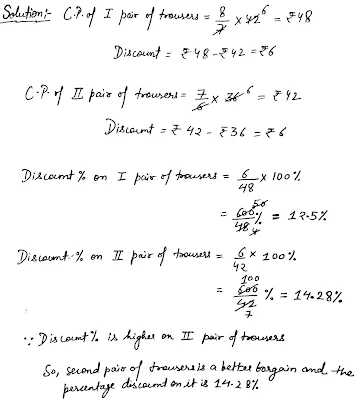 Solution:- C.P. of I pair of trousers = 8/7 × 42 6 = ₹48
Discount = ₹48 - ₹42 = ₹6
C.P. of II pair of trousers = 7/6 × 36 6 = ₹42
Discount = ₹42 - ₹36 = ₹6
Discount % on I pair of trousers = 6/48 × 100%
= 600/48 % 50 4 = 12.5%
Discount % on II pair of trousers = 6/42 × 100%
= 600/42 % 100 7 = 14.28%
∵ Discount % is higher on II pair of trousers
So, second pair of trousers is a better bargain and the
percentage discount on it is 14.28%